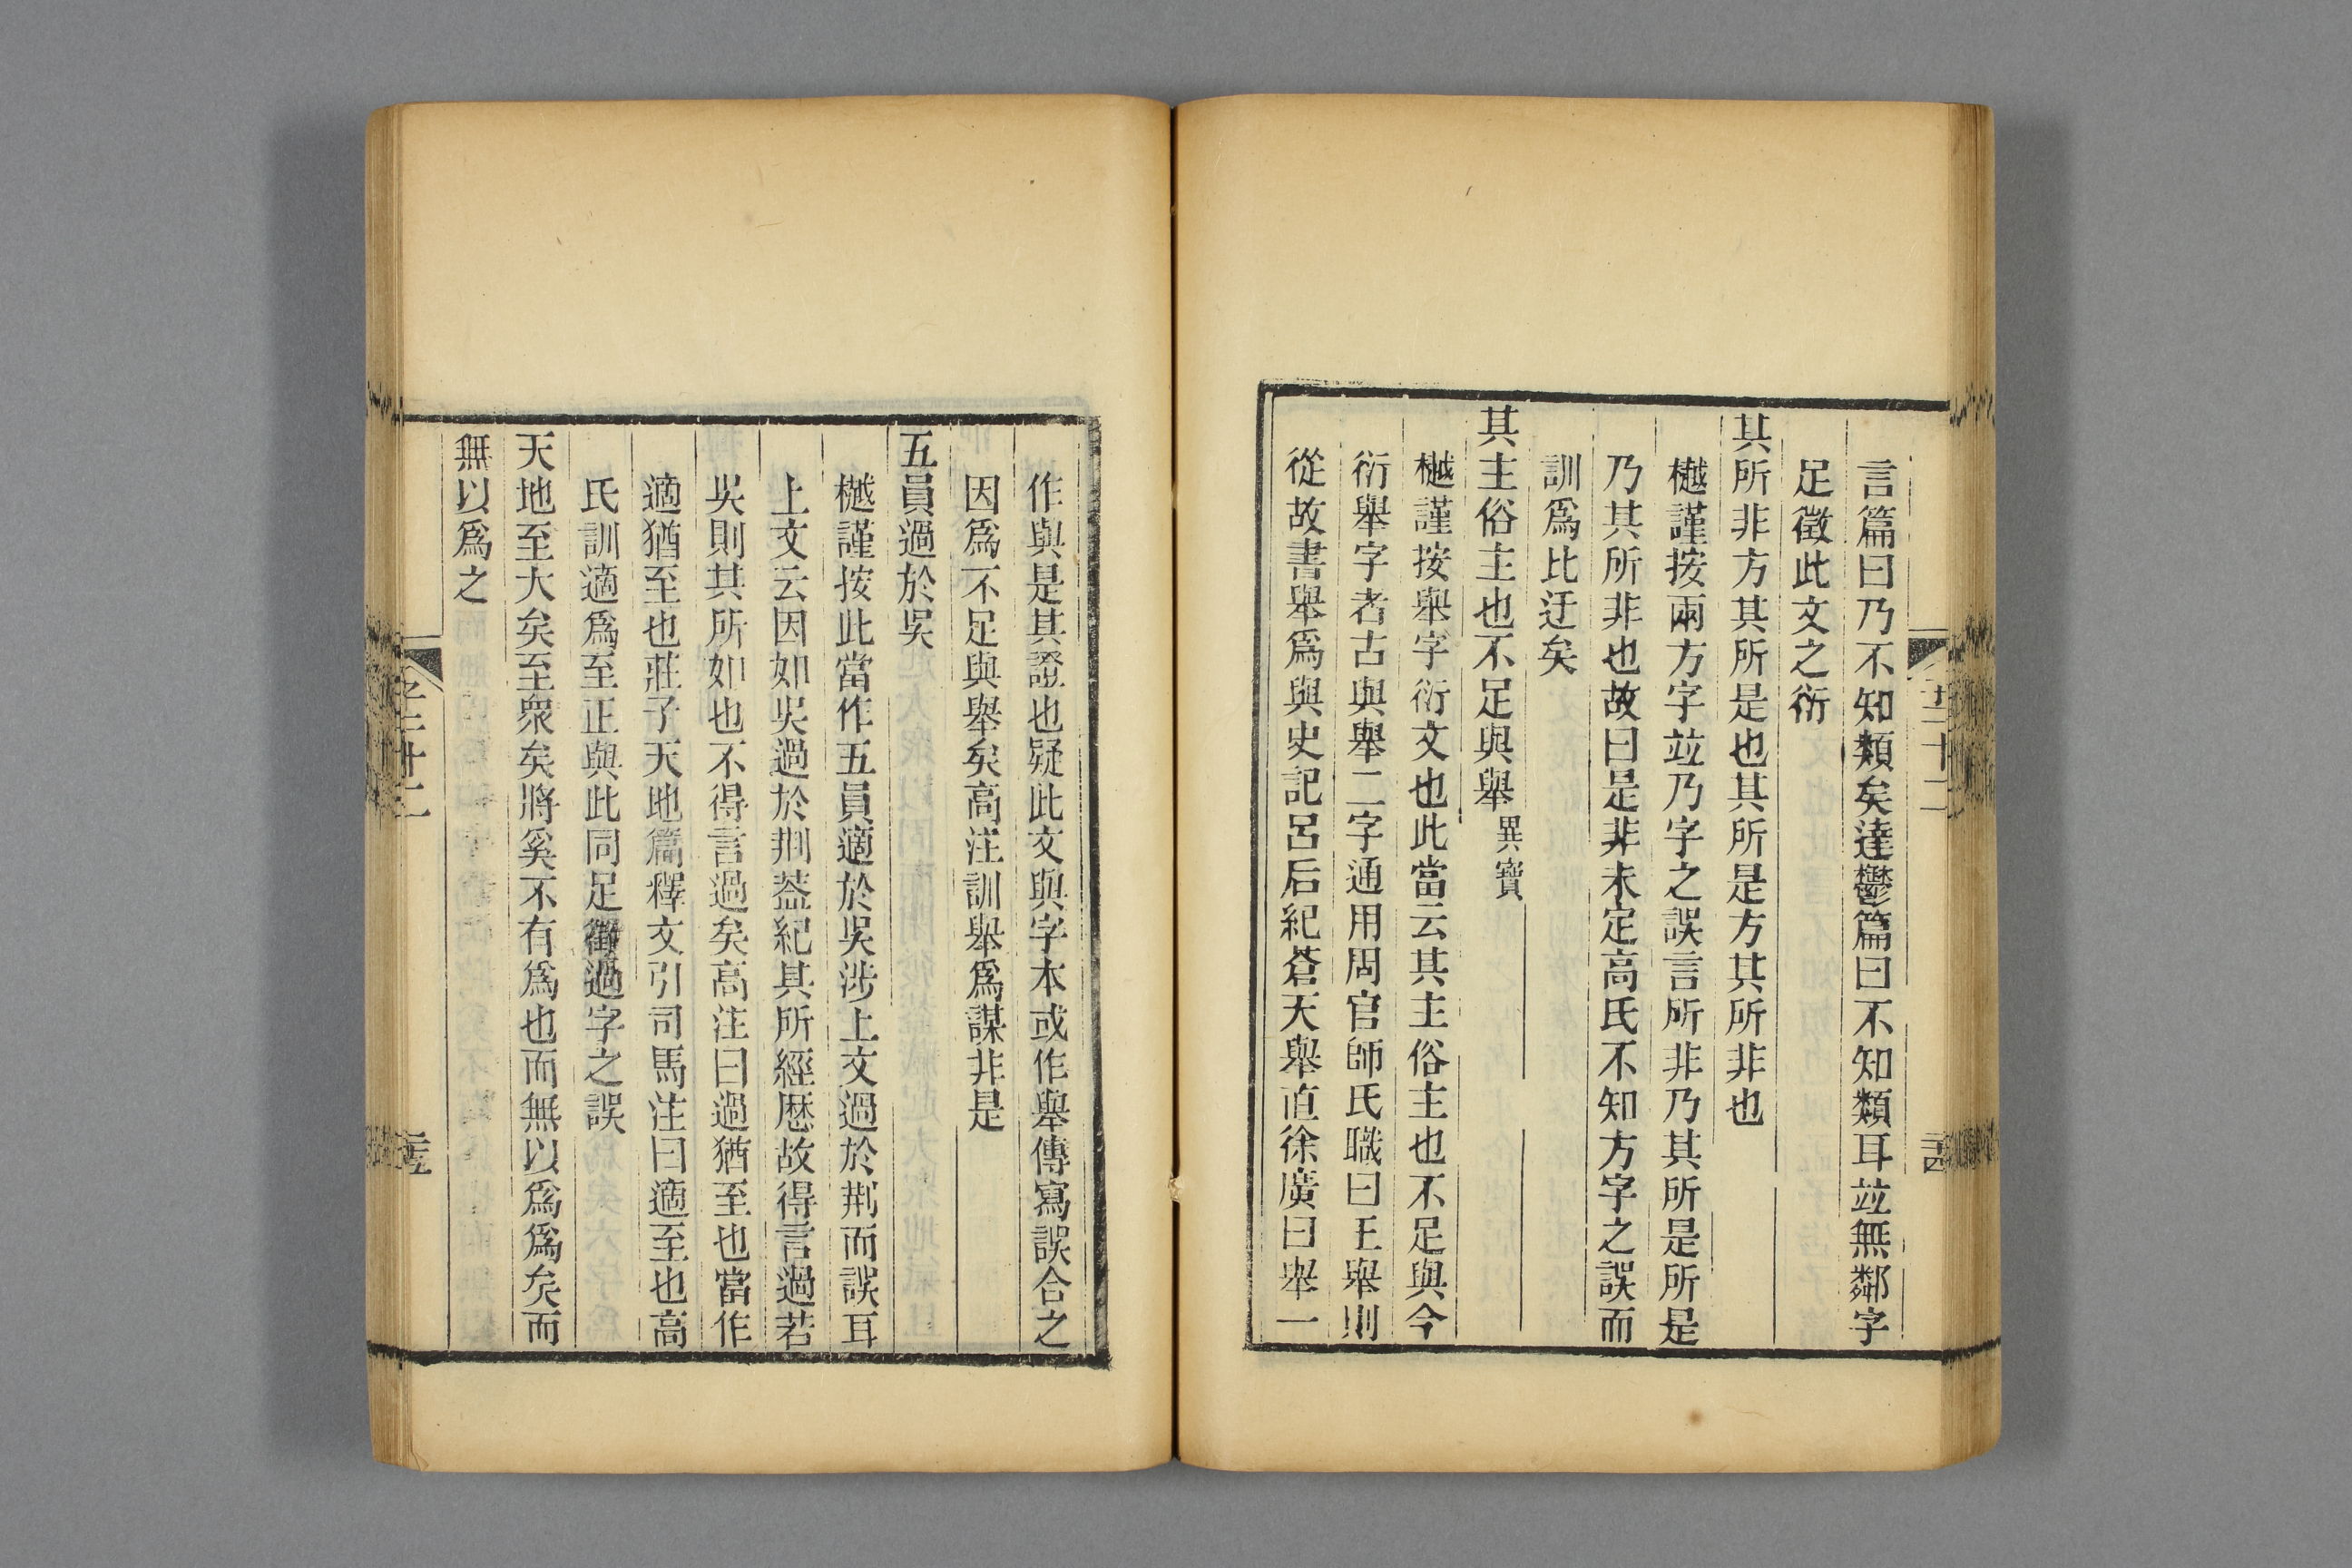 言篇曰乃不知類矣達鬱篇曰不知類耳竝無鄰字
足徵此文之衍
其所非方其所是也其所是方其所非也
樾謹按兩方字竝乃字之誤言所非乃其所是所是
乃其所非也故曰是非未定高氏不知方字之誤而
訓爲比迂矣
其主俗主也不足與舉異寶
樾謹按舉字衍文也此當云其主俗主也不足與今
衍舉字者古與舉二字通用周官師氏職曰王舉則
從故書舉爲與史記呂后紀蒼天舉直徐廣曰舉一
作與是其證也疑此文與字本或作舉傳寫誤合之
因爲不足與舉矣高注訓舉爲謀非是
五員過於吳
樾謹按此當作五員適於吳涉上文過於荆而誤耳
上文云因如吳過於荆葢紀其所經歴故得言過若
吳則其所如也不得言過矣高注曰過猶至也當作
適猶至也莊子天地篇釋文引司馬注曰適至也高
氏訓適爲至正與此同足徵過字之誤
天地至大矣至衆矣將奚不有爲也而無以爲爲矣而
無以爲之